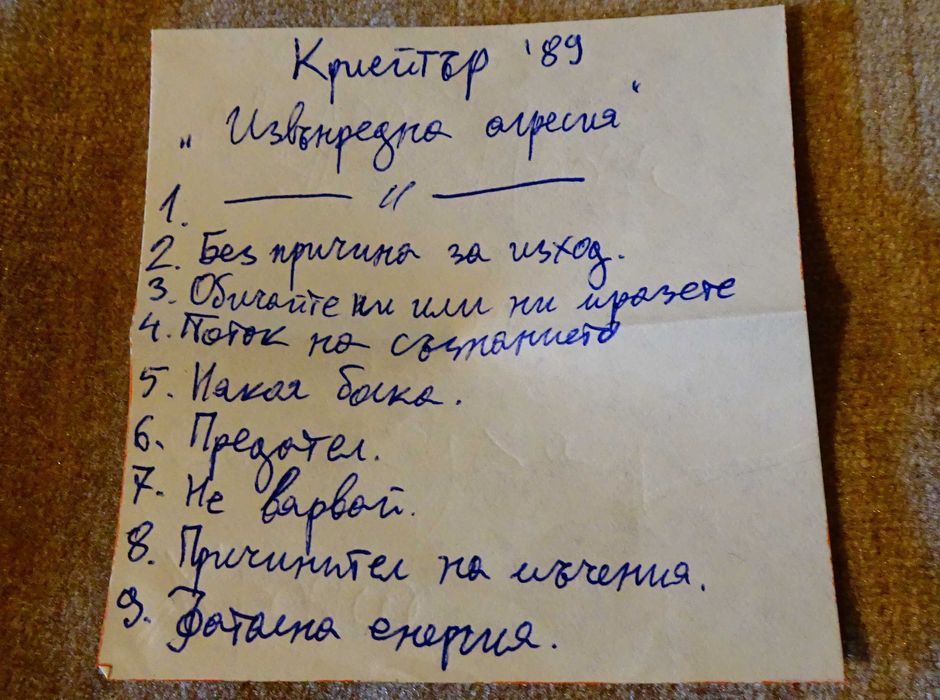 Криейтър '89
„Извънредна агресия"
1. —— " ——
2. Без причина за изход.
3. Обичайте ни или ни мразете
4. Поток на съзнанието
5. Някоя болка.
6. Предател.
7. Не вярвай.
8. Причинител на мъчения.
9. Фатална енергия.